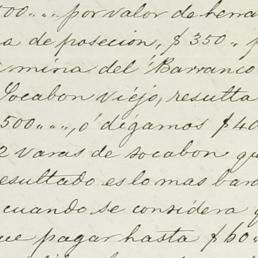 500 〃〃 por valor de herra
a de posecion, $ 350 〃 p
mina del Barranco
Socabon Viéjo, resulta
500 〃〃, ó digamos $ 40
2 varas de socabon qu
esultado es lo mas bara
cuando se considera q
ue pagar hasta $ 60 〃